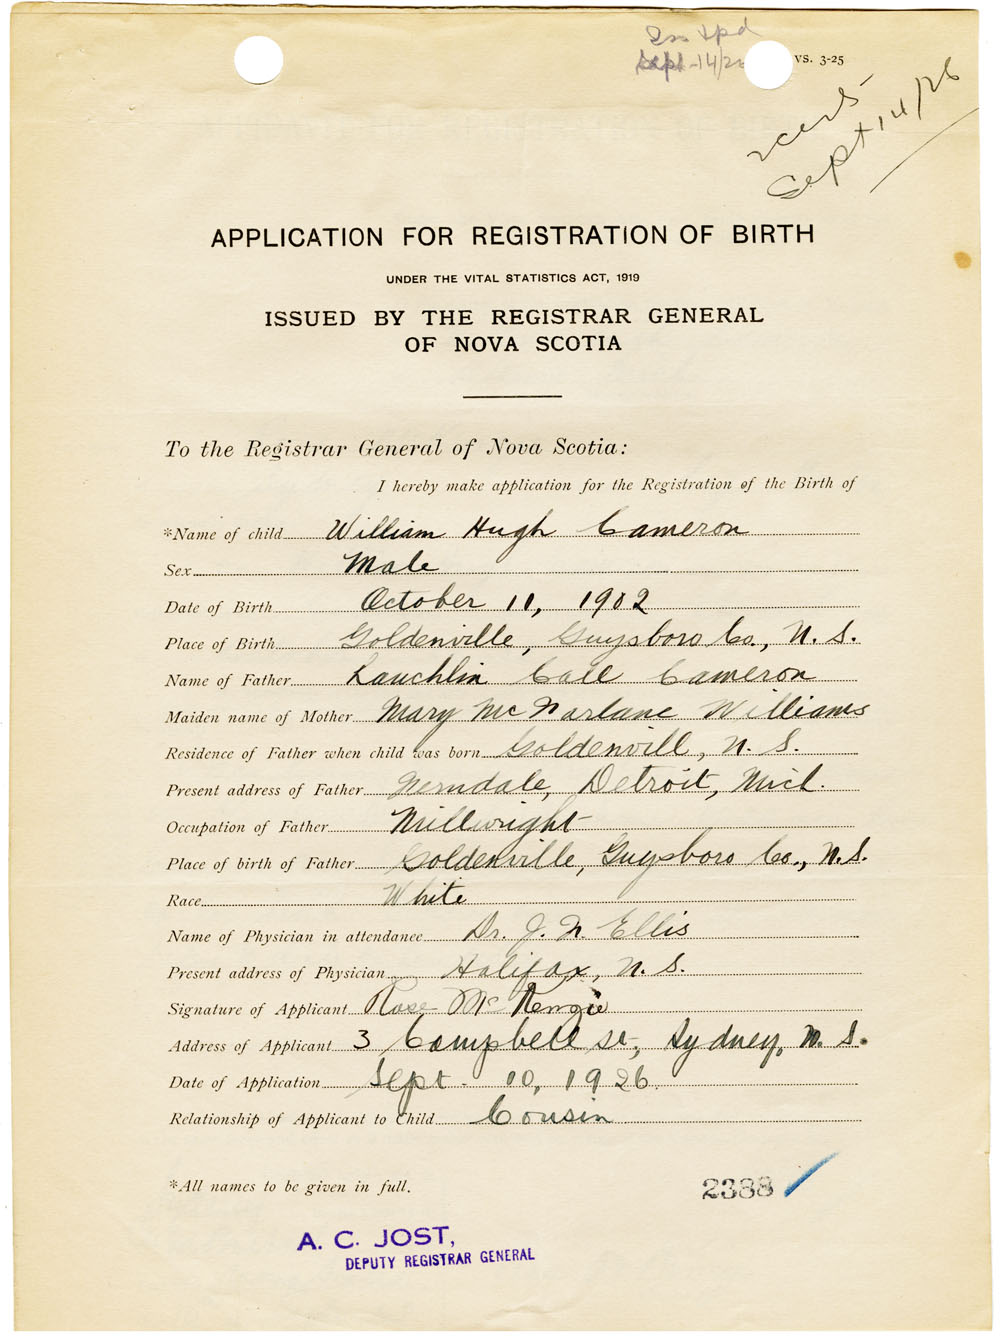 Sept-14/26
VS. 3-25
Sept 14/26
APPLICATION FOR REGISTRATION OF BIRTH
UNDER THE VITAL STATISTICS ACT, 1919
ISSUED BY THE REGISTRAR GENERAL
OF NOVA SCOTIA
To the Registrar General of Nova Scotia:
I hereby make application for the Registration of the Birth of
*Name of child William Hugh Cameron
Sex Male
Date of Birth October 11, 1902
Place of Birth Goldenville, Guysboro Co., N. S.
Name of Father Lauchlin Call Cameron
Maiden name of Mother Mary McFarlane Williams
Residence of Father when child was born Goldenvill, N. S.
Present address of Father Ferndale, Detroit, Mich.
Occupation of Father Millwright
Place of birth of Father Goldenville, Guysboro Co., N.S.
Race White
Name of Physician in attendance Dr. J. N. Ellis
Present address of Physician Halifax, N. S.
Signature of Applicant Rose McKenzie
Address of Applicant 3 Campbell st, Sydney, N. S.
Date of Application Sept. 10, 1926.
Relationship of Applicant to Child Cousin
*All names to be given in full.
2388
A. C. JOST,
DEPUTY REGISTRAR GENERAL